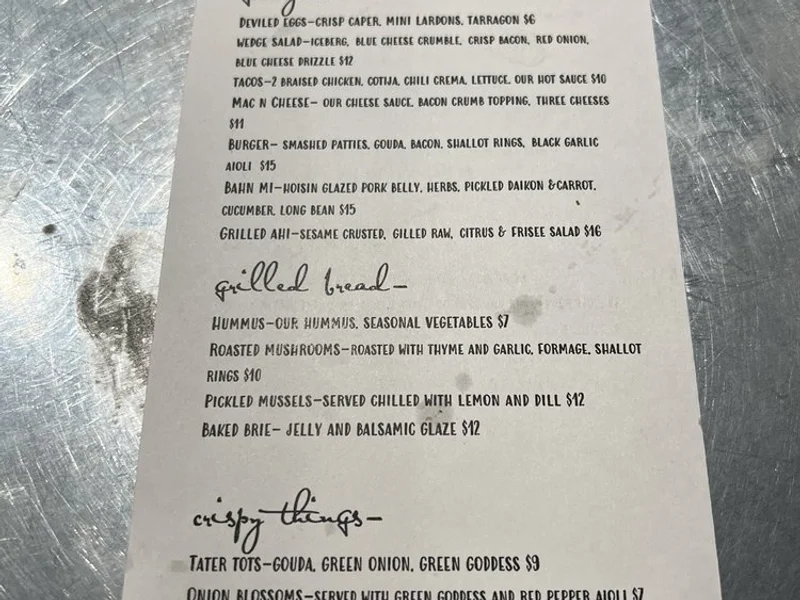 DEVILED EGGS-CRISP CAPER, MINI LARDONS, TARRAGON $6
WEDGE SALAD-ICEBERG, BLUE CHEESE CRUMBLE, CRISP BACON, RED ONION,
BLUE CHEESE DRIZZLE $12
TACOS-2 BRAISED CHICKEN, COTIJA, CHILI CREMA, LETTUCE, OUR HOT SAUCE $10
MAC N CHEESE- OUR CHEESE SAUCE, BACON CRUMB TOPPING, THREE CHEESES
$11
BURGER- SMASHED PATTIES, GOUDA, BACON, SHALLOT RINGS, BLACK GARLIC
AIOLI $15
BAHN MI-HOISIN GLAZED PORK BELLY, HERBS, PICKLED DAIKON &CARROT,
CUCUMBER, LONG BEAN $15
GRILLED AHI-SESAME CRUSTED, GILLED RAW, CITRUS & FRISEE SALAD $16
grilled bread-
HUMMUS-OUR HUMMUS, SEASONAL VEGETABLES $7
ROASTED MUSHROOMS-ROASTED WITH THYME AND GARLIC, FORMAGE, SHALLOT
RINGS $10
PICKLED MUSSELS-SERVED CHILLED WITH LEMON AND DILL $12
BAKED BRIE- JELLY AND BALSAMIC GLAZE $12
crispy things-
TATER TOTS-GOUDA, GREEN ONION, GREEN GODDESS $9
ONION BLOSSOMS-SERVED WITH GREEN GODDESS AND RED PEPPER AIOLI $7